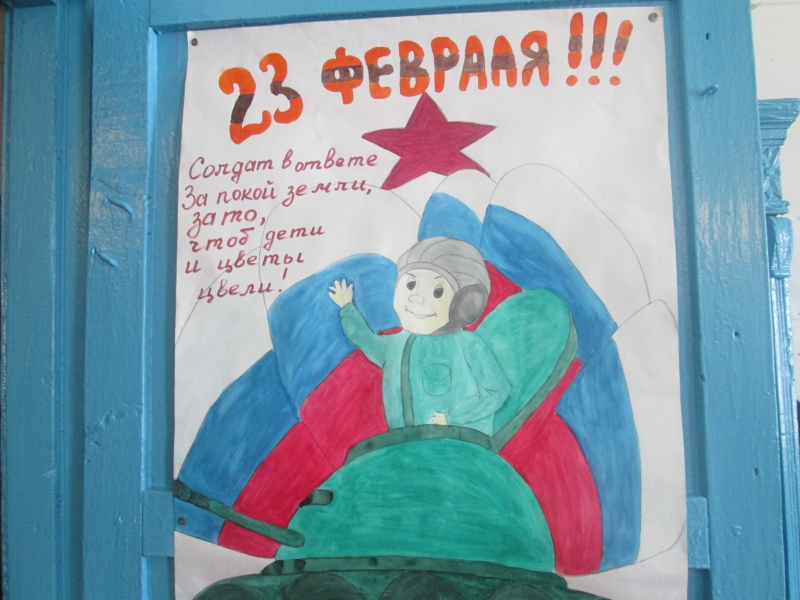 23 ФЕВРАЛЯ!!!
Солдат в ответе
За покой земли,
за то,
чтоб дети
и цветы
цвели!